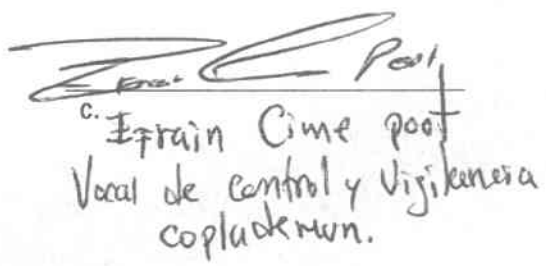 Pool
C. Efrain Cime poot
Vocal de control y Vigilancia
coplademun.